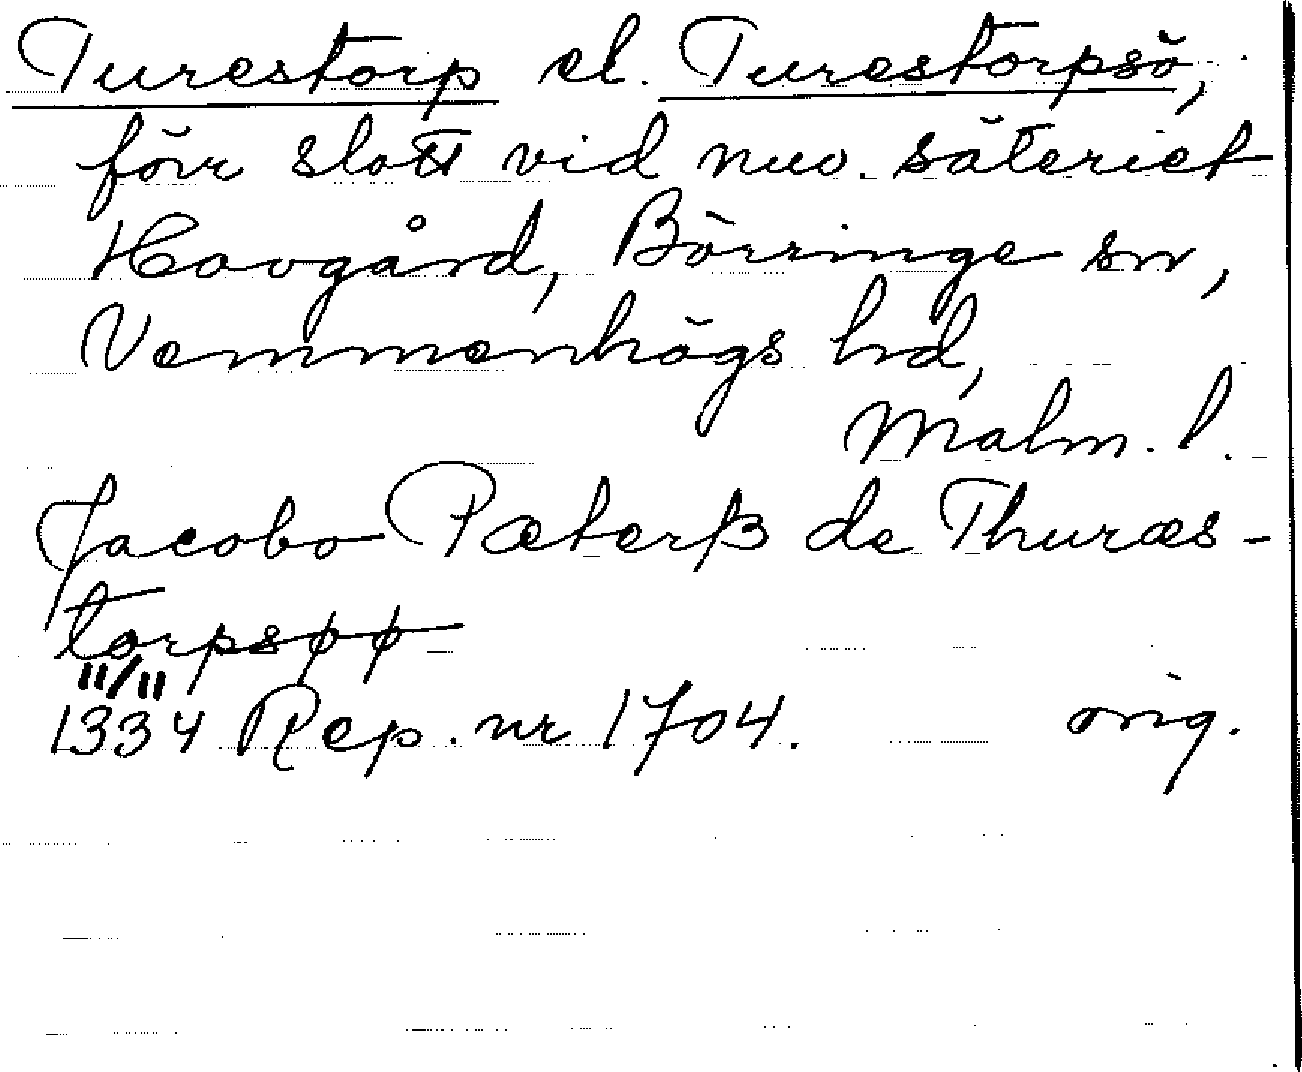 Turestorp el. Turestorpsö,
förr slott vid nuv. säteriet
Havgård, Börringe sn,
Vemmenhögs hd,
Malm. l.
Jacobo Pæterß de Thuræs-
torpsøø
11/11
1334 Rep. nr 1704. orig.